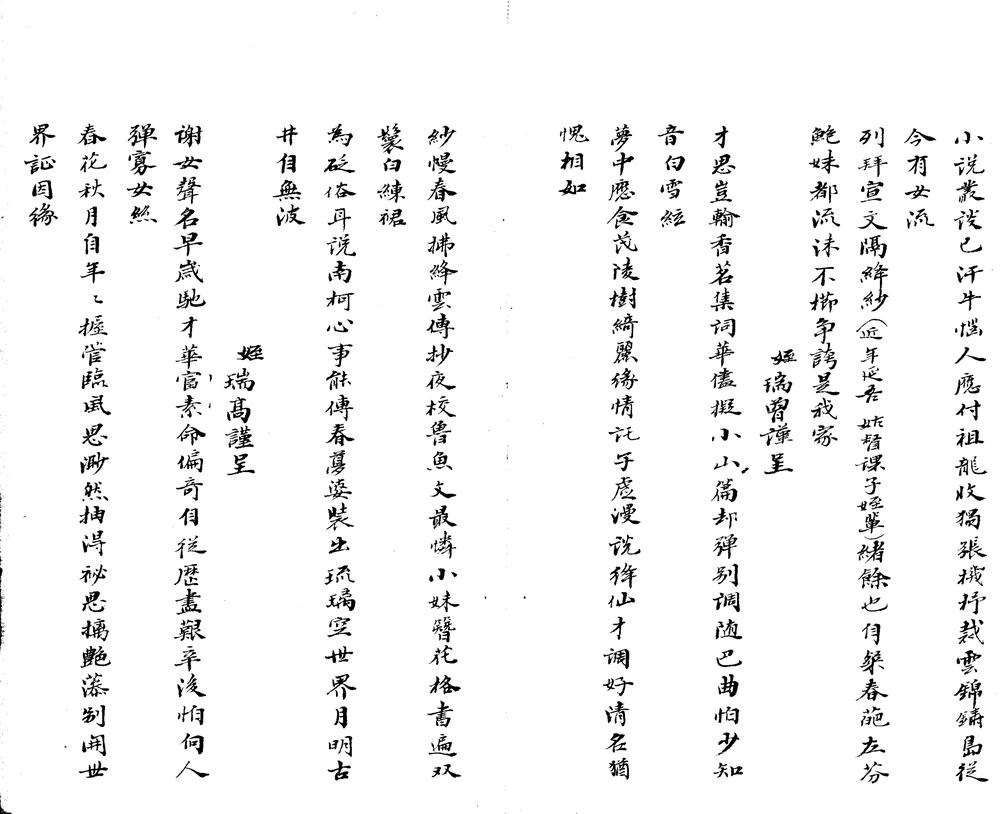 小說叢談已汗牛惱人應付祖龍收獨張機抒裁雲錦鑄島從
今有女流
列拜宣文隔絳紗(近年延吾姑督課子姪輩)緒餘也自築春葩左芬
鮑妹都流沬不櫛爭誇是我家
姪瑞曾謹呈
才思豈輸香茗集詞華儘擬小山篇却彈別調随巴曲怕少知
音白雪絃
夢中應食茂陵樹綺麗緣情託子虛漫說徐仙才調好清名猶
愧相如
紗幔春風拂絳雲傳抄夜校魯魚文最憐小妹簪花格書遍双
鬟白練裙
為砭俗耳說南柯心事能傳春夢婆裝出琉璃空世界月明古
井自無波
姪瑞高謹呈
谢女聲名早歲馳才華富素命偏奇自從歷盡艱辛後怕向人
彈寡女絲
春花秋月自年々握管臨風思渺然抽得祕思摛艶藻别開世
界証因緣